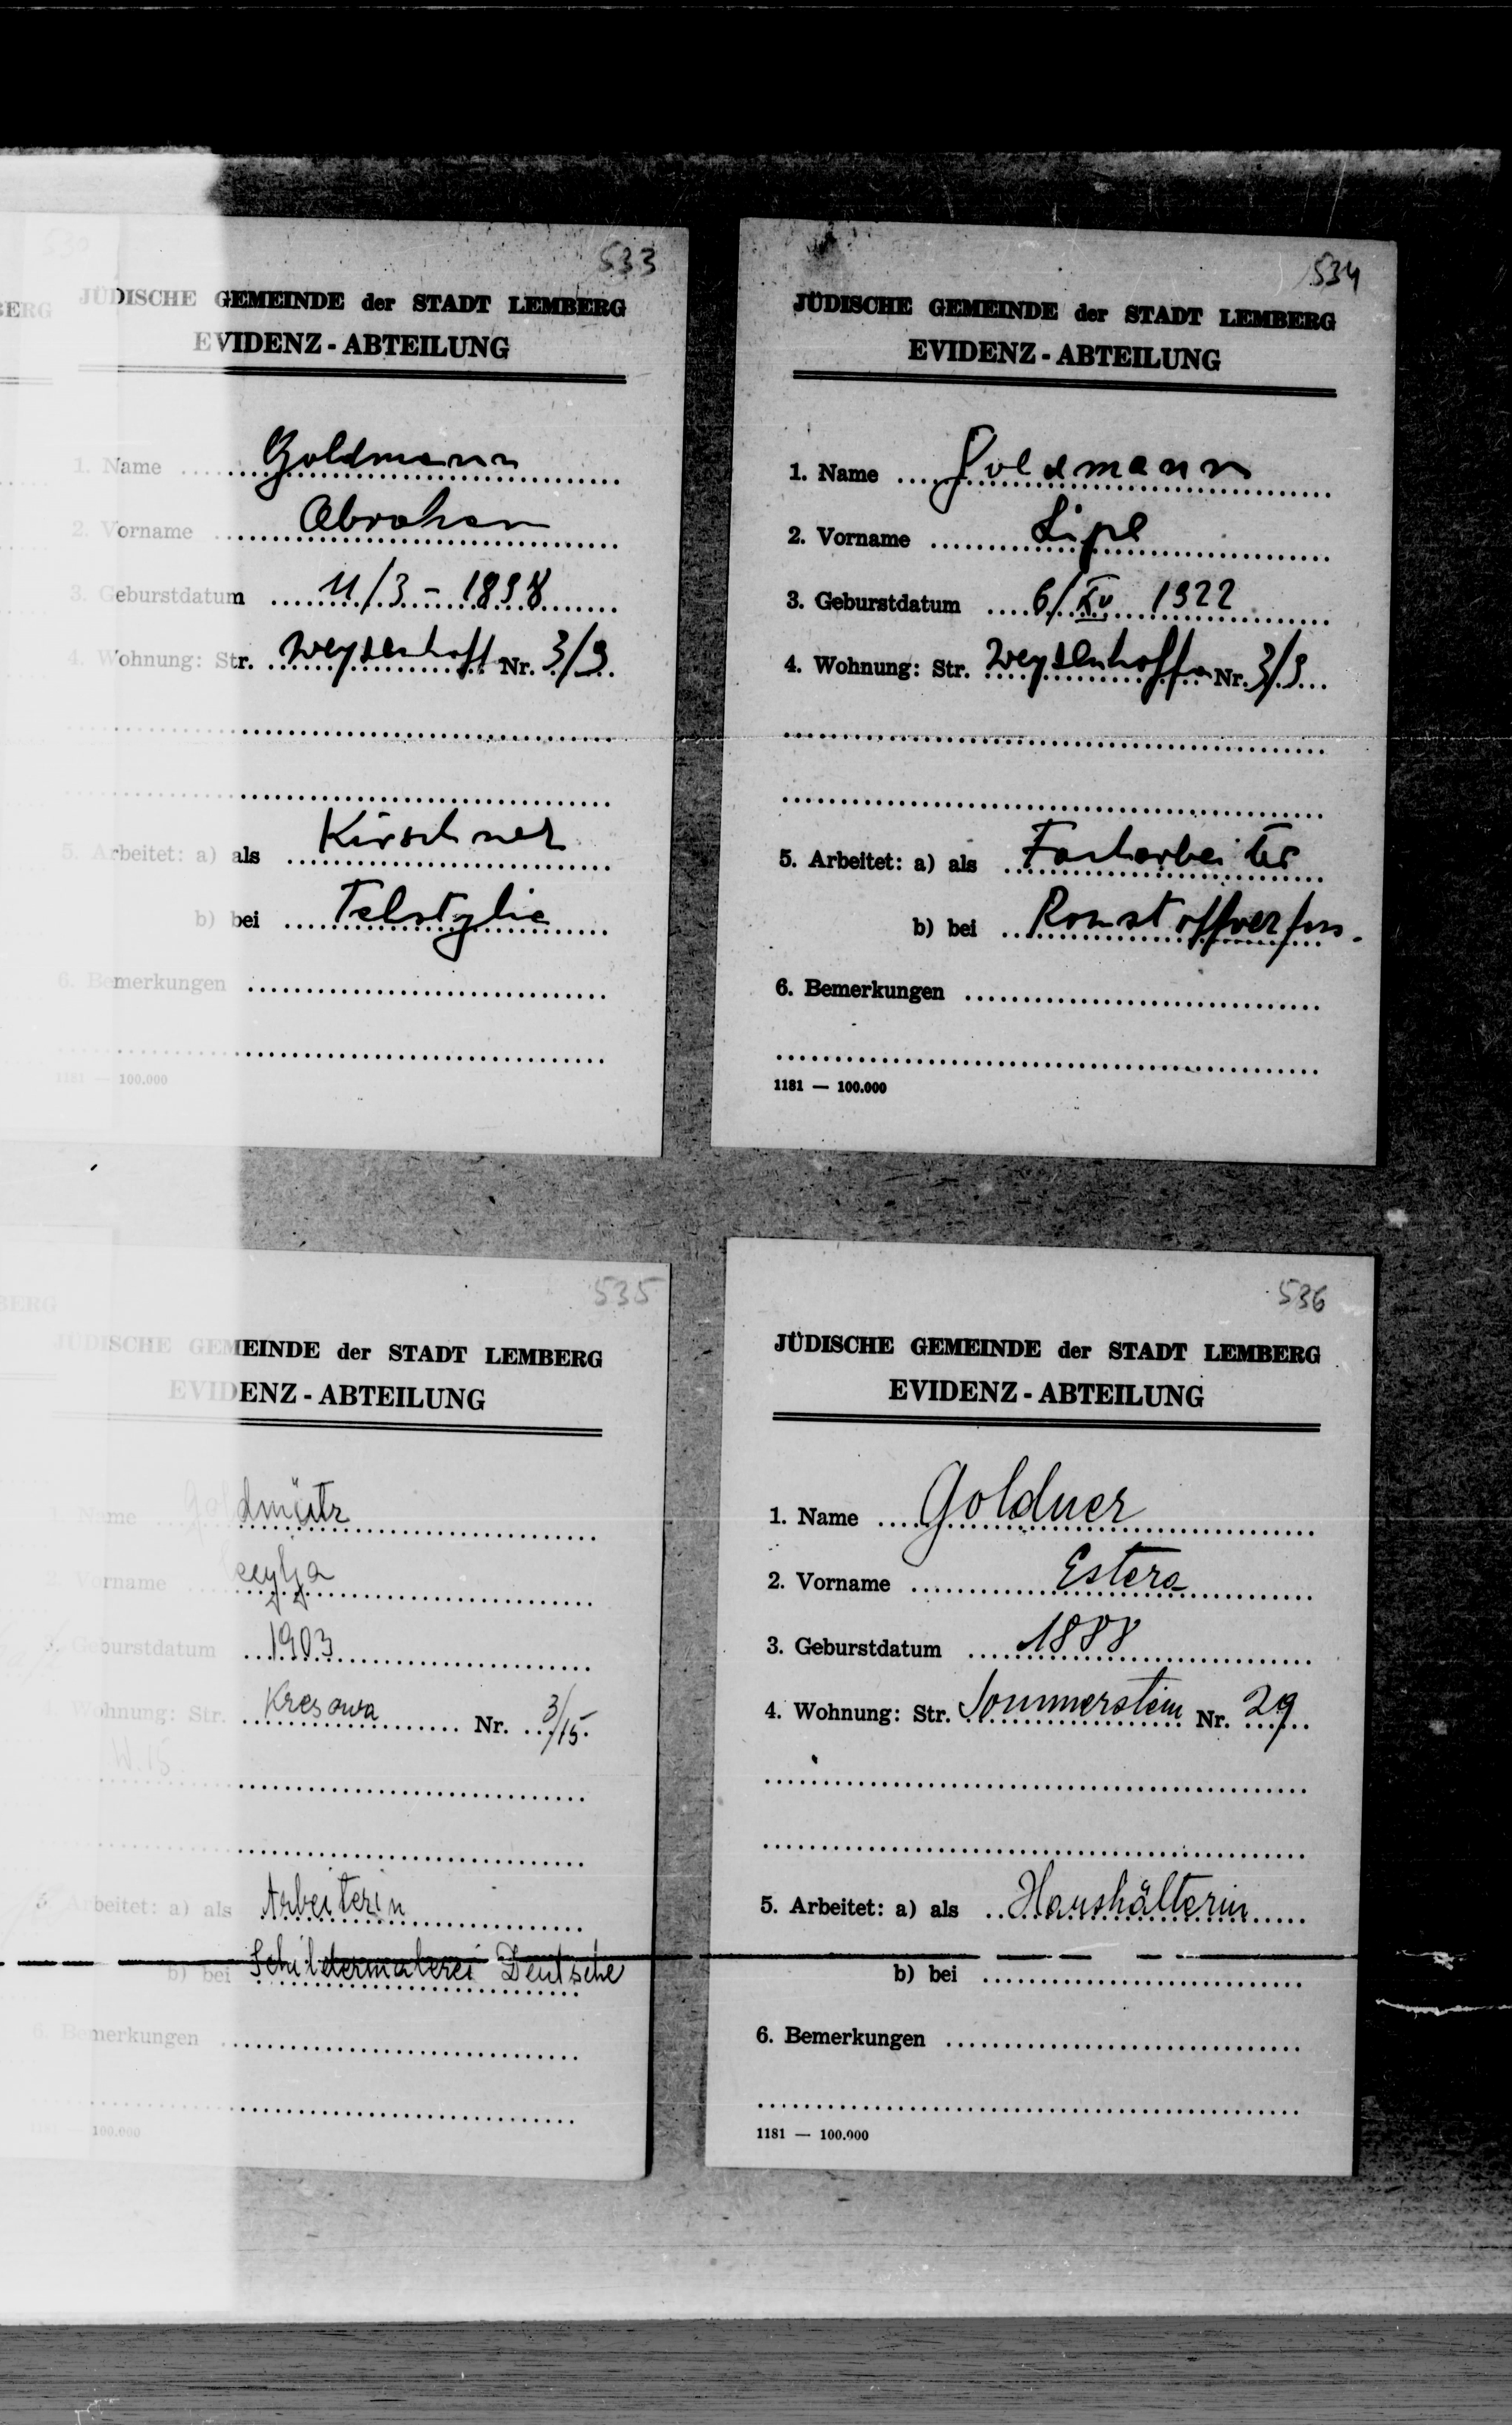 533
JÜDISCHE GEMEINDE der STADT LEMBERG
EVIDENZ - ABTEILUNG
1. Name Goldmann
2. Vorname Abraham
3. Geburstdatum 11/3 - 1898
4. Wohnung: Str. Weysenhoff Nr. 3/9
5. Arbeitet: a) als Kürschner
b) bei
6. Bemerkungen
1181 — 100.000
534
JÜDISCHE GEMEINDE der STADT LEMBERG
EVIDENZ - ABTEILUNG
1. Name Goldmann
2. Vorname Lipe
3. Geburstdatum 6/ 1922
4. Wohnung: Str. Weysenhoffa Nr. 3/9
5. Arbeitet: a) als Facharbeiter
b) bei
6. Bemerkungen
1181 — 100.000
535
JÜDISCHE GEMEINDE der STADT LEMBERG
EVIDENZ - ABTEILUNG
1. Name Goldmütz
2. Vorname Cecylja
3. Geburstdatum 1903
4. Wohnung: Str. Kresowa Nr. 3/15.
W. 15
5. Arbeitet: a) als Arbeiterin
b) bei Schildermalerei Deutsche
6. Bemerkungen
1181 — 100.000
536
JÜDISCHE GEMEINDE der STADT LEMBERG
EVIDENZ - ABTEILUNG
1. Name Goldner
2. Vorname Estera
3. Geburstdatum 1888
4. Wohnung: Str. Sommerstein Nr. 29
5. Arbeitet: a) als Haushälterin
b) bei
6. Bemerkungen
1181 — 100.000